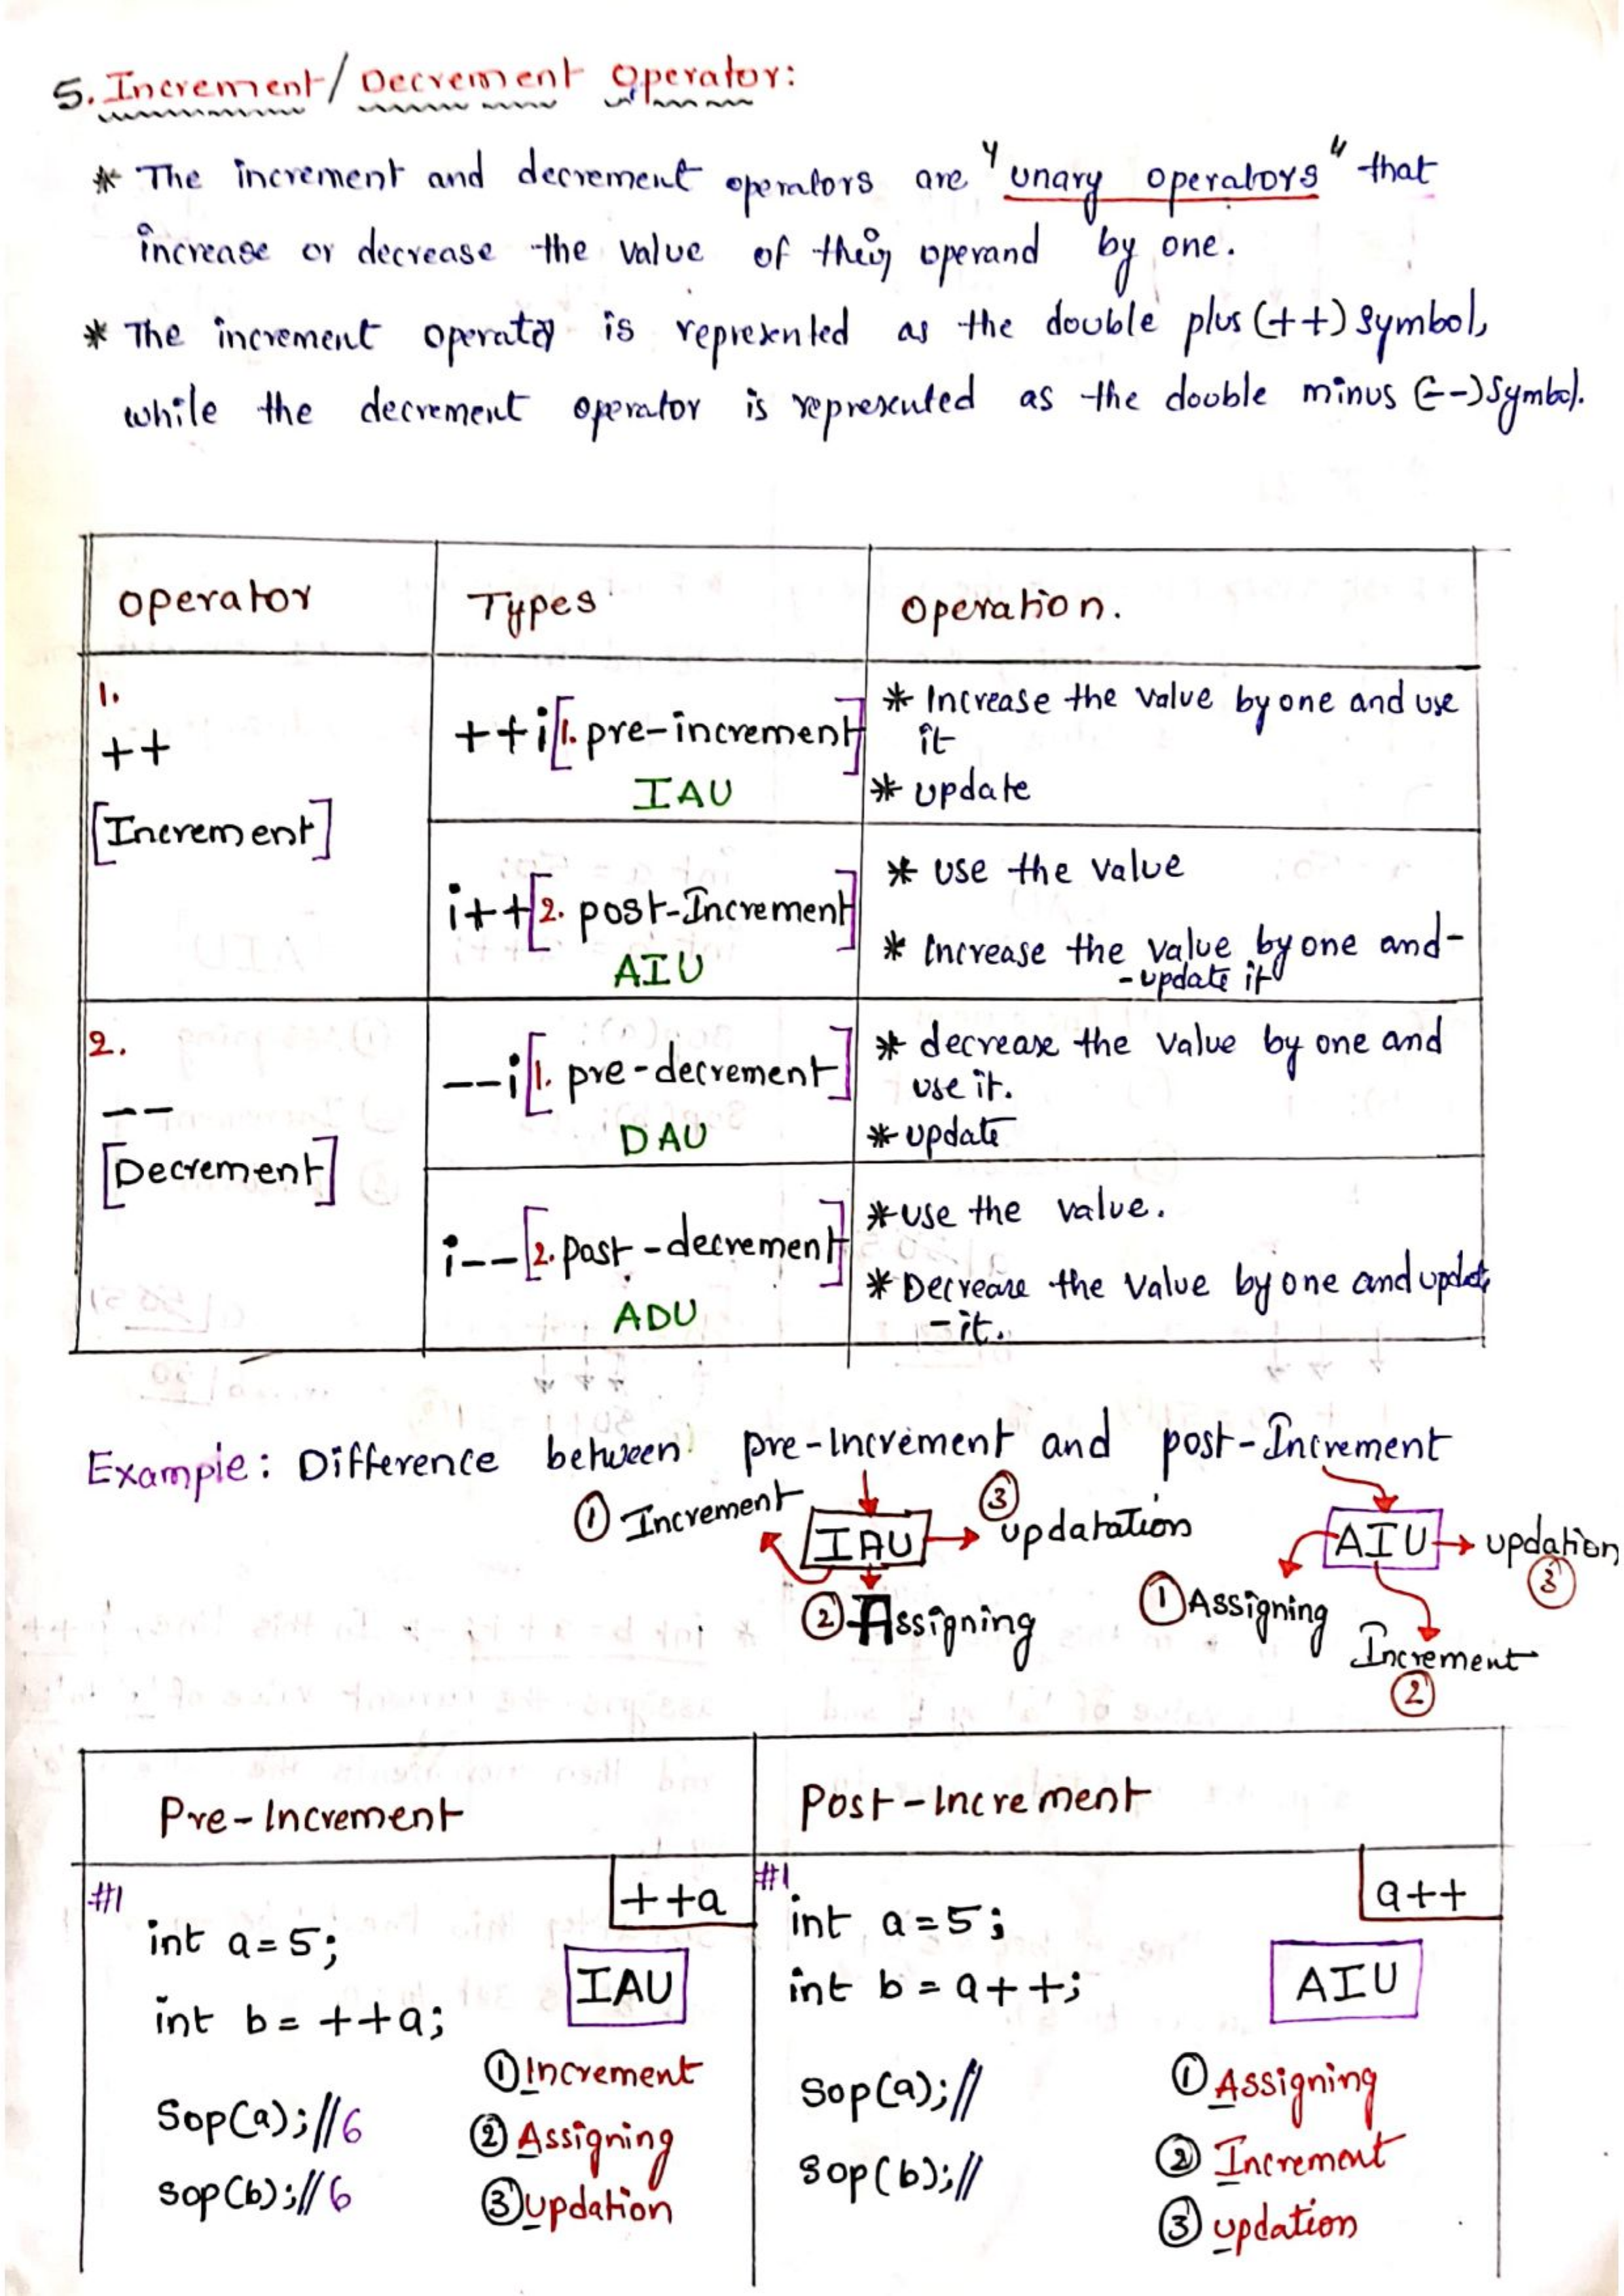 5. Increment/Decrement Operator:
* The increment and decrement operators are "unary operators" that
increase or decrease the value of their operand by one.
* The increment operator is represented as the double plus (++) symbol,
while the decrement operator is represented as the double minus (--) symbol.
operator Types operation.
1.
++
[Increment]
++i [1. pre-increment]
IAU
* Increase the value by one and use
it
* update
i++ [2. post-Increment]
AIU
* use the value
* Increase the value by one and-
-update it
2.
--
[Decrement]
--i [1. pre-decrement]
DAU
* decrease the value by one and
use it.
* update
i-- [2. post-decrement]
ADU
* use the value.
* Decrease the value by one and update
-it.
Example: Difference between pre-Increment and post-Increment
① Increment IAU ③ updatation
② Assigning
AIU updation ③
① Assigning
Increment
②
Pre-Increment
Post-Increment
#1 ++a
int a=5;
IAU
int b= ++a;
① Increment
Sop(a);//6
② Assigning
sop(b);//6
③ updation
#1 a++
int a=5;
int b=a++;
AIU
Sop(a);//
① Assigning
② Increment
Sop(b);//
③ updation